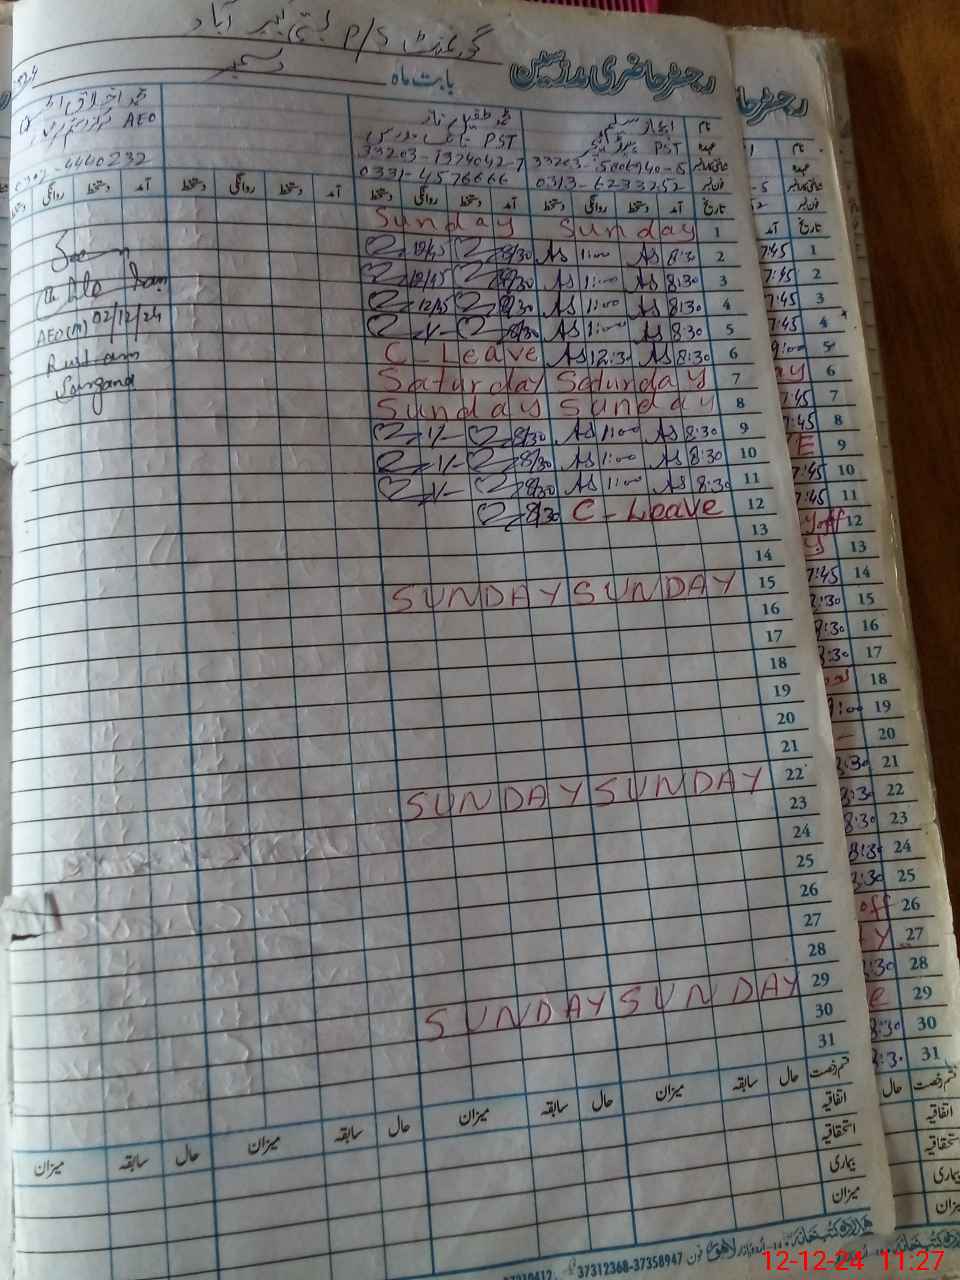 گورنمنٹ P/S بستی نبیر آباد
رجسٹر حاضری مدرسین بابت ماہ دسمبر
نام
عہدہ PST PST AEO
33203-5006940-5 33203-1974042-7
0313-6233252 0331-4576666 0302-4440232
تاریخ آمد دستخط روانگی دستخط آمد دستخط روانگی دستخط آمد دستخط روانگی دستخط آمد دستخط روانگی دستخط
1 Sunday Sunday
2 8:30 As 1:00 As 8/30 12/45
3 8:30 As 1:00 As 8/30 12/45
4 8:30 As 1:00 As 8/30 12/45
5 8:30 As 1:00 As 8/30 1/-
6 8:30 As 12:30 As C-Leave
7 Saturday Saturday
8 Sunday Sunday
9 8:30 As 1:00 As 8/30 1/-
10 8:30 As 1:00 As 8/30 1/-
11 8:30 As 1:00 As 8/30 1/-
12 C-Leave 8/30
13
14
15 SUNDAY SUNDAY
16
17
18
19
20
21
22 SUNDAY SUNDAY
23
24
25
26
27
28
29 SUNDAY SUNDAY
30
31
AEO(M) 02/12/24
قسم رخصت حال سابقہ میزان حال سابقہ میزان حال سابقہ میزان حال سابقہ میزان
اتفاقیہ
استحقاقیہ
بیماری
میزان
لاہور فون 37312368-37358947
رجسٹر حا
نام
عہدہ
تاریخ آمد
1 7:45
2 7:45
3 7:45
4 7:45
5 9:00
6 ay
7 7:45
8 7:45
9 E
10 7:45
11 7:45
12 off
13 y
14 7:45
15 8:30
16 8:30
17 8:30
18
19 9:00
20
21 8:30
22 8:30
23 8:30
24 8:30
25 8:30
26 off
27 Y
28 8:30
29 e
30 8:30
31 8:30
قسم رخصت حال
اتفاقیہ
استحقاقیہ
بیماری
میزان
12-12-24 11:27